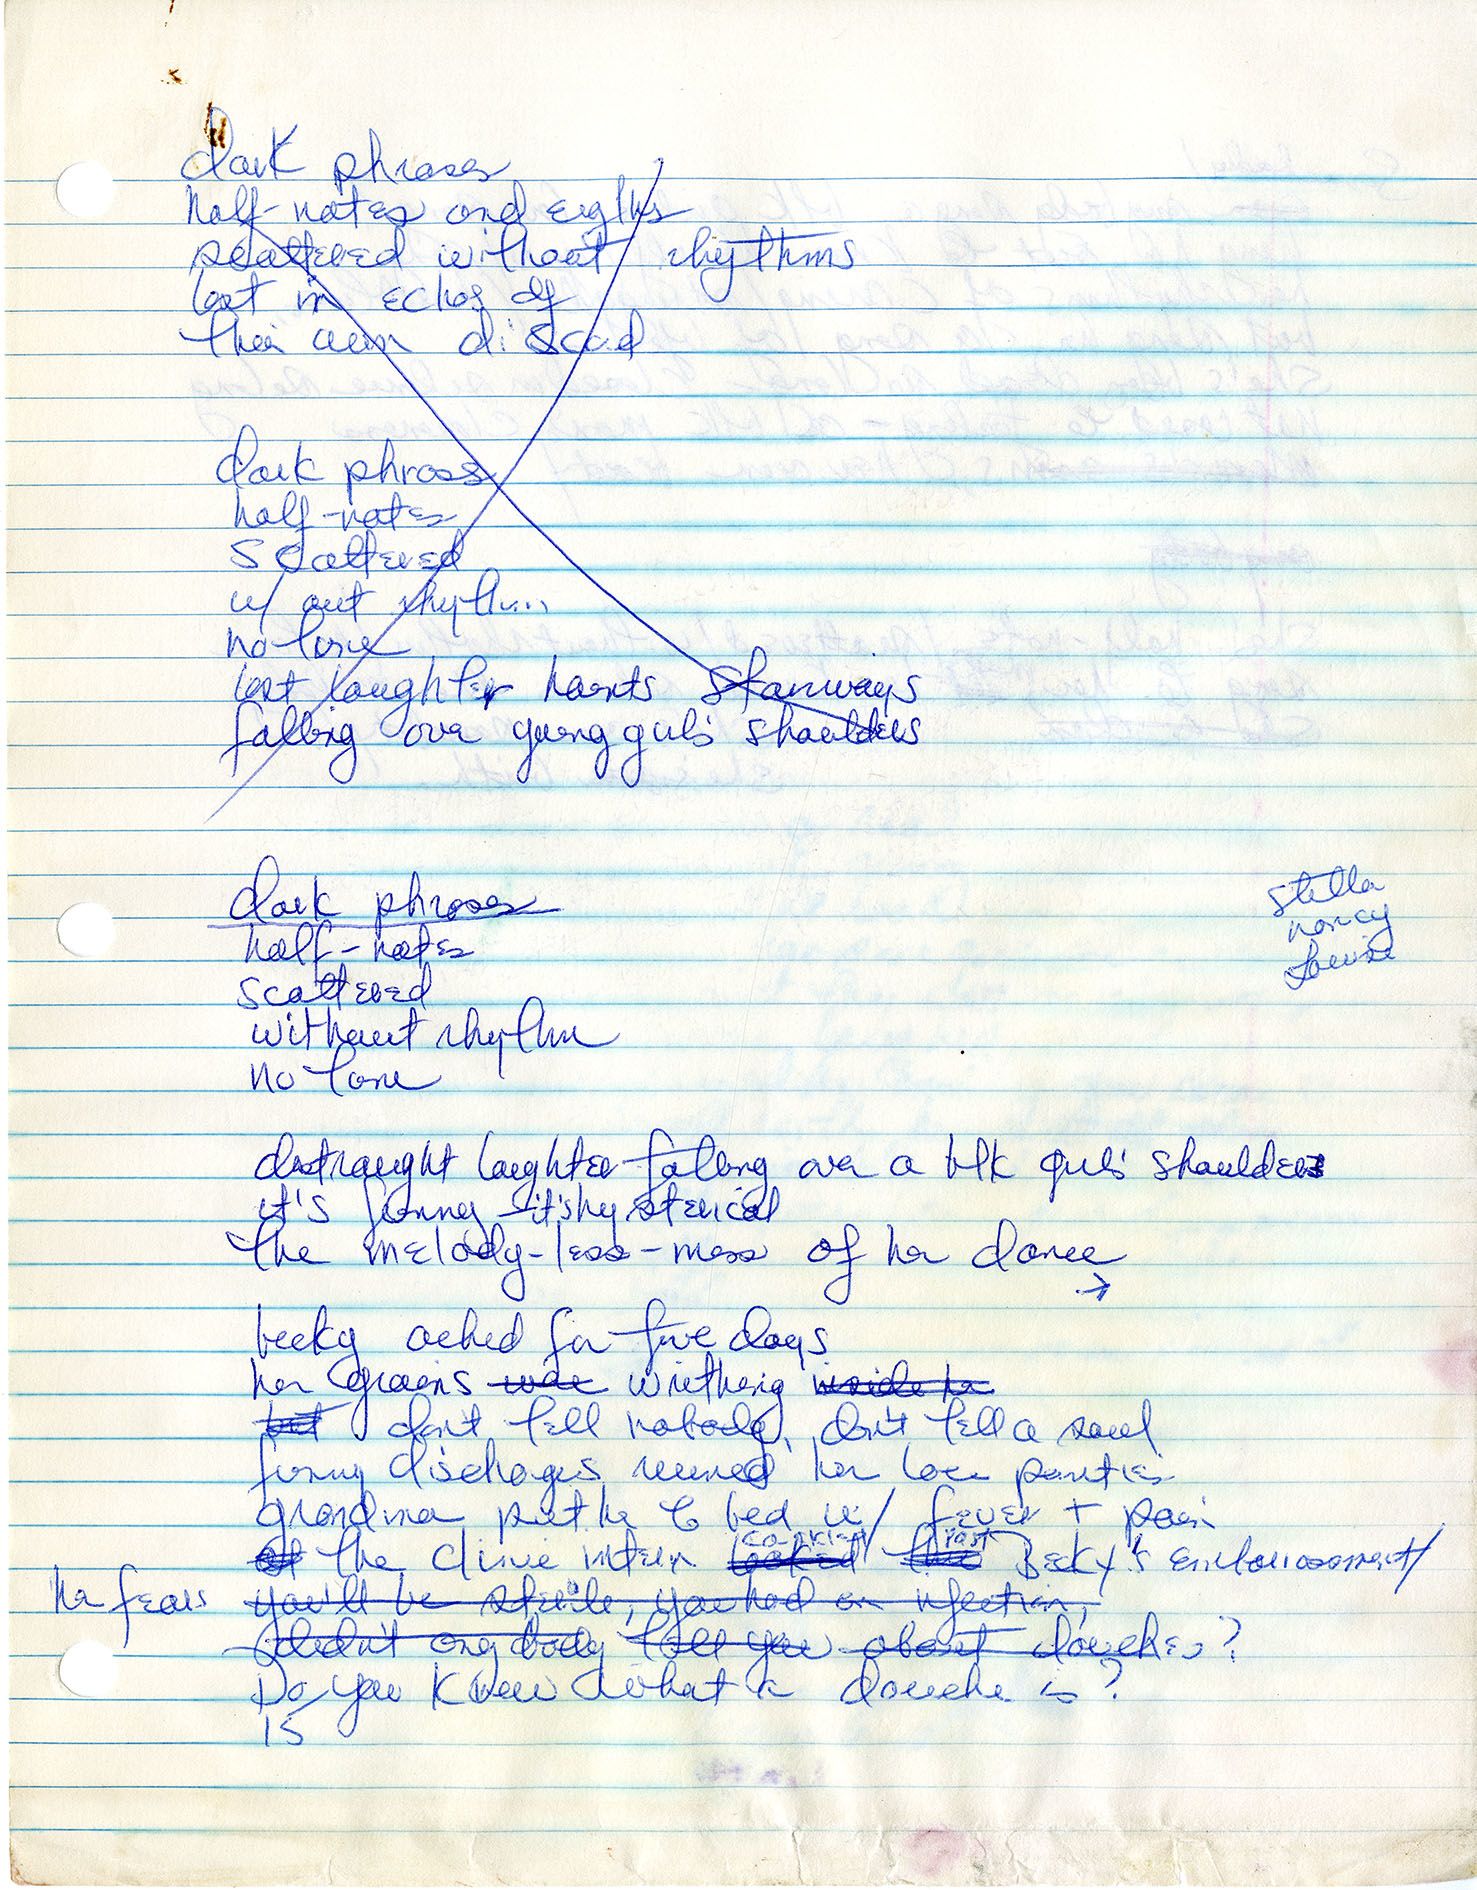 dark phrases
half-notes and eigths
scattered without rhythms
lost in echos of
their own discod
dark phrases
half-notes
scattered
w/out rhythm
no tone
lost laughter haunts stairways
falling over young girls' shoulders
dark phrases
half-notes
scattered
without rhythm
no tone
stella
nancy
louise
distraught laughter falling over a blk girls' shoulders
it's funny it's hysterical
the melody-less-ness of her dance
→
becky ached for five days
her groins were writhing inside her
but don't tell nobody, don't tell a soul
funny discharges ruined her lace panties
grandma put her to bed w/ fever + pain
the clinic intern looked past Becky's embarrassment/
her fears you'll be sterile, you had an infection,
didn't anybody tell you about douches?
Do you know what a douche is?
15